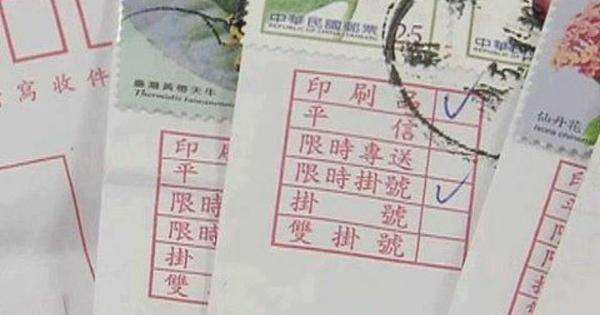 寫收件
臺灣黃帶天牛
中華民國郵票
REPUBLIC OF CHINA
25
中華
仙丹花
印刷品
平信
限時專送
限時掛號
掛號
雙掛號
印刷
平
限時
限時
掛
雙